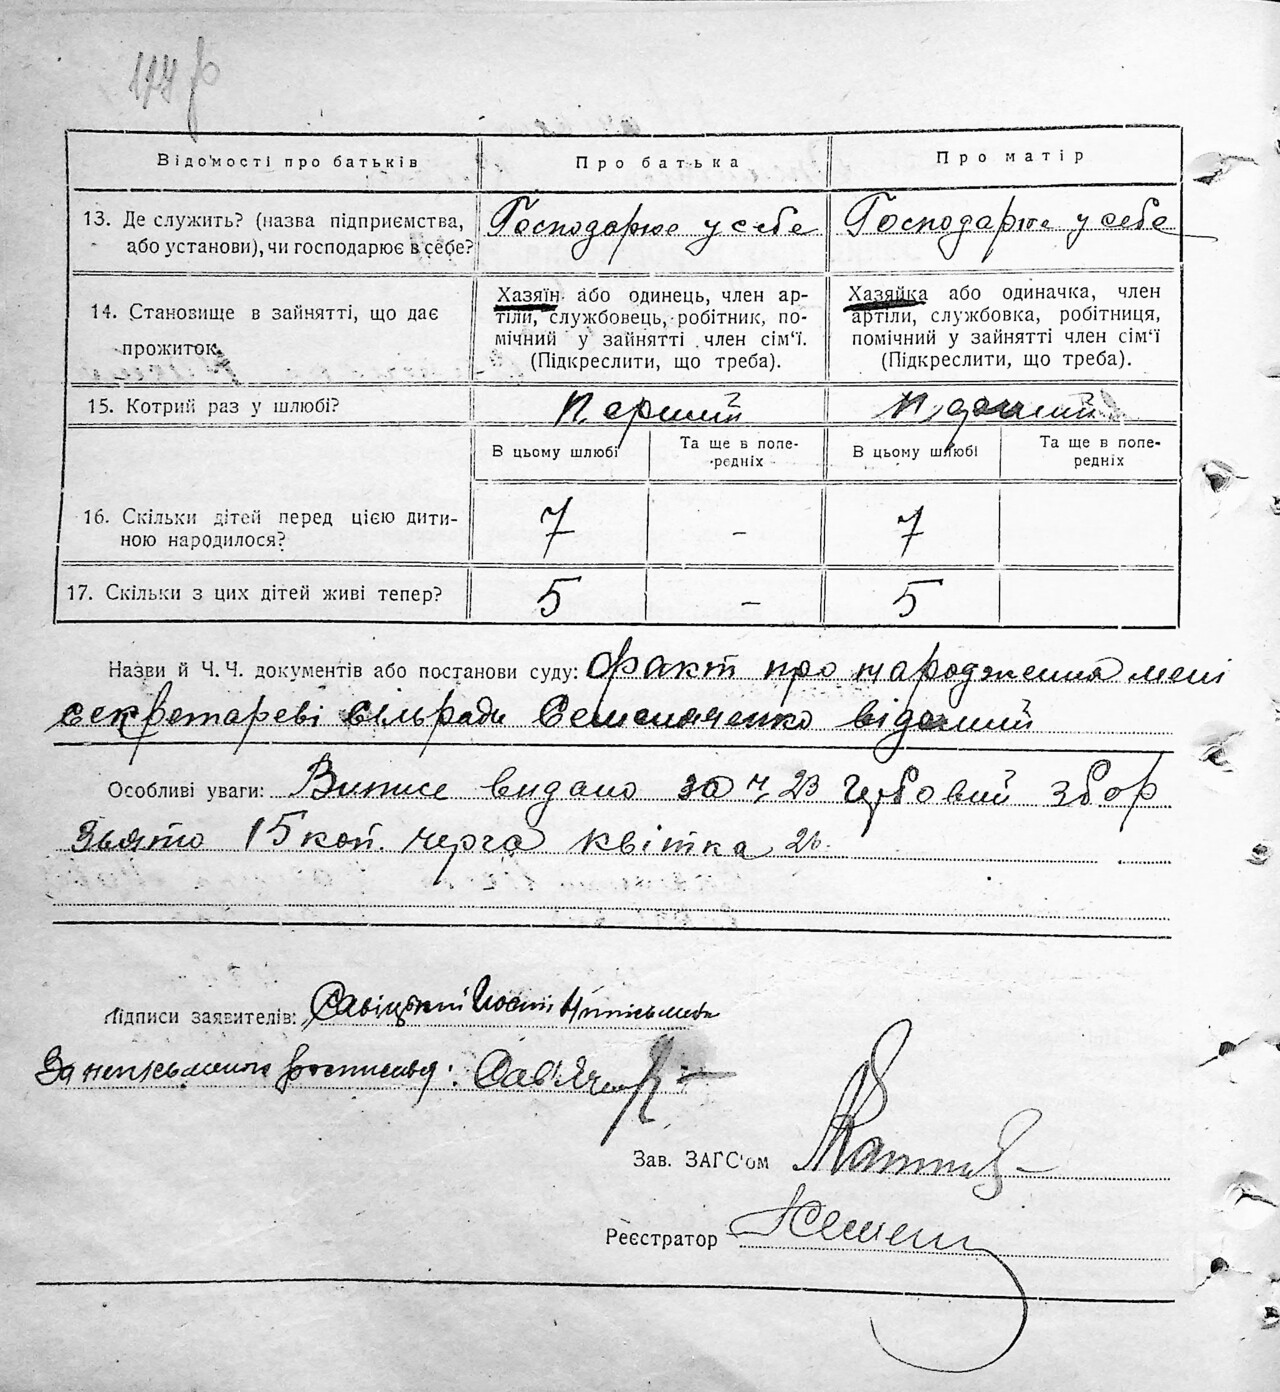 Відомості про батьків Про батька Про матір
13. Де служить? (назва підприємства, або установи), чи господарює в себе? Господарює у себе Господарює у себе
14. Становище в зайнятті, що дає прожиток.
Хазяїн або одинець, член ар-
тіли, службовець, робітник, по-
мічний у зайнятті член сім'ї.
(Підкреслити, що треба).
Хазяйка або одиначка, член
артіли, службовка, робітниця,
помічний у зайнятті член сім'ї
(Підкреслити, що треба).
15. Котрий раз у шлюбі? Перший
В цьому шлюбі Та ще в попе-редніх В цьому шлюбі Та ще в попе-редніх
16. Скільки дітей перед цією дити-
ною народилося? 7 - 7
17. Скільки з цих дітей живі тепер? 5 - 5
Назви й Ч. Ч. документів або постанови суду: Факт про народження мені
секретареві сільради відомий
Особливі уваги: Випис видано за ч. 23 збор
звято 15 коп. черга квітка
Підписи заявителів: Савіцький
За неписьменого
Зав. ЗАГС'ом
Реєстратор